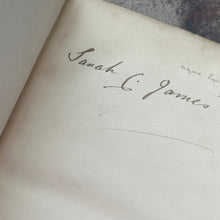 Sarah C. James